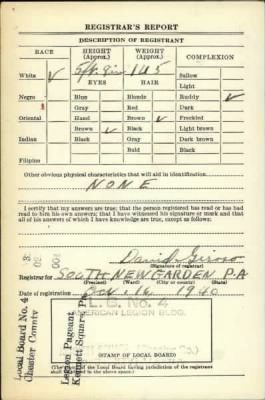 REGISTRAR'S REPORT
DESCRIPTION OF REGISTRANT
RACE
HEIGHT (Approx.)
WEIGHT (Approx.)
COMPLEXION
White ✓
5 ft. 9 in
145
Sallow
EYES
HAIR
Light
Negro
Blue
Blonde
Ruddy ✓
Gray
Red
Dark
Oriental
Hazel
Brown
Freckled
Brown ✓
Black ✓
Light brown
Indian
Black
Gray
Dark brown
Bald
Black
Filipino
Other obvious physical characteristics that will aid in identification
NONE
I certify that my answers are true; that the person registered has read or has had
read to him his own answers; that I have witnessed his signature or mark and that
all of his answers of which I have knowledge are true, except as follows:
David
(Signature of registrar)
Registrar for SOUTH NEW GARDEN PA
(Precinct) (Ward) (City or county) (State)
Date of registration Oct. 16, 1940
L. B. No. 4
AMERICAN LEGION BLDG.
Local Board No. 4
Chester County
Legion Pageant
Kennett Square Pa
(STAMP OF LOCAL BOARD)
(The stamp of the Local Board having jurisdiction of the registrant
shall be placed in the above space.)